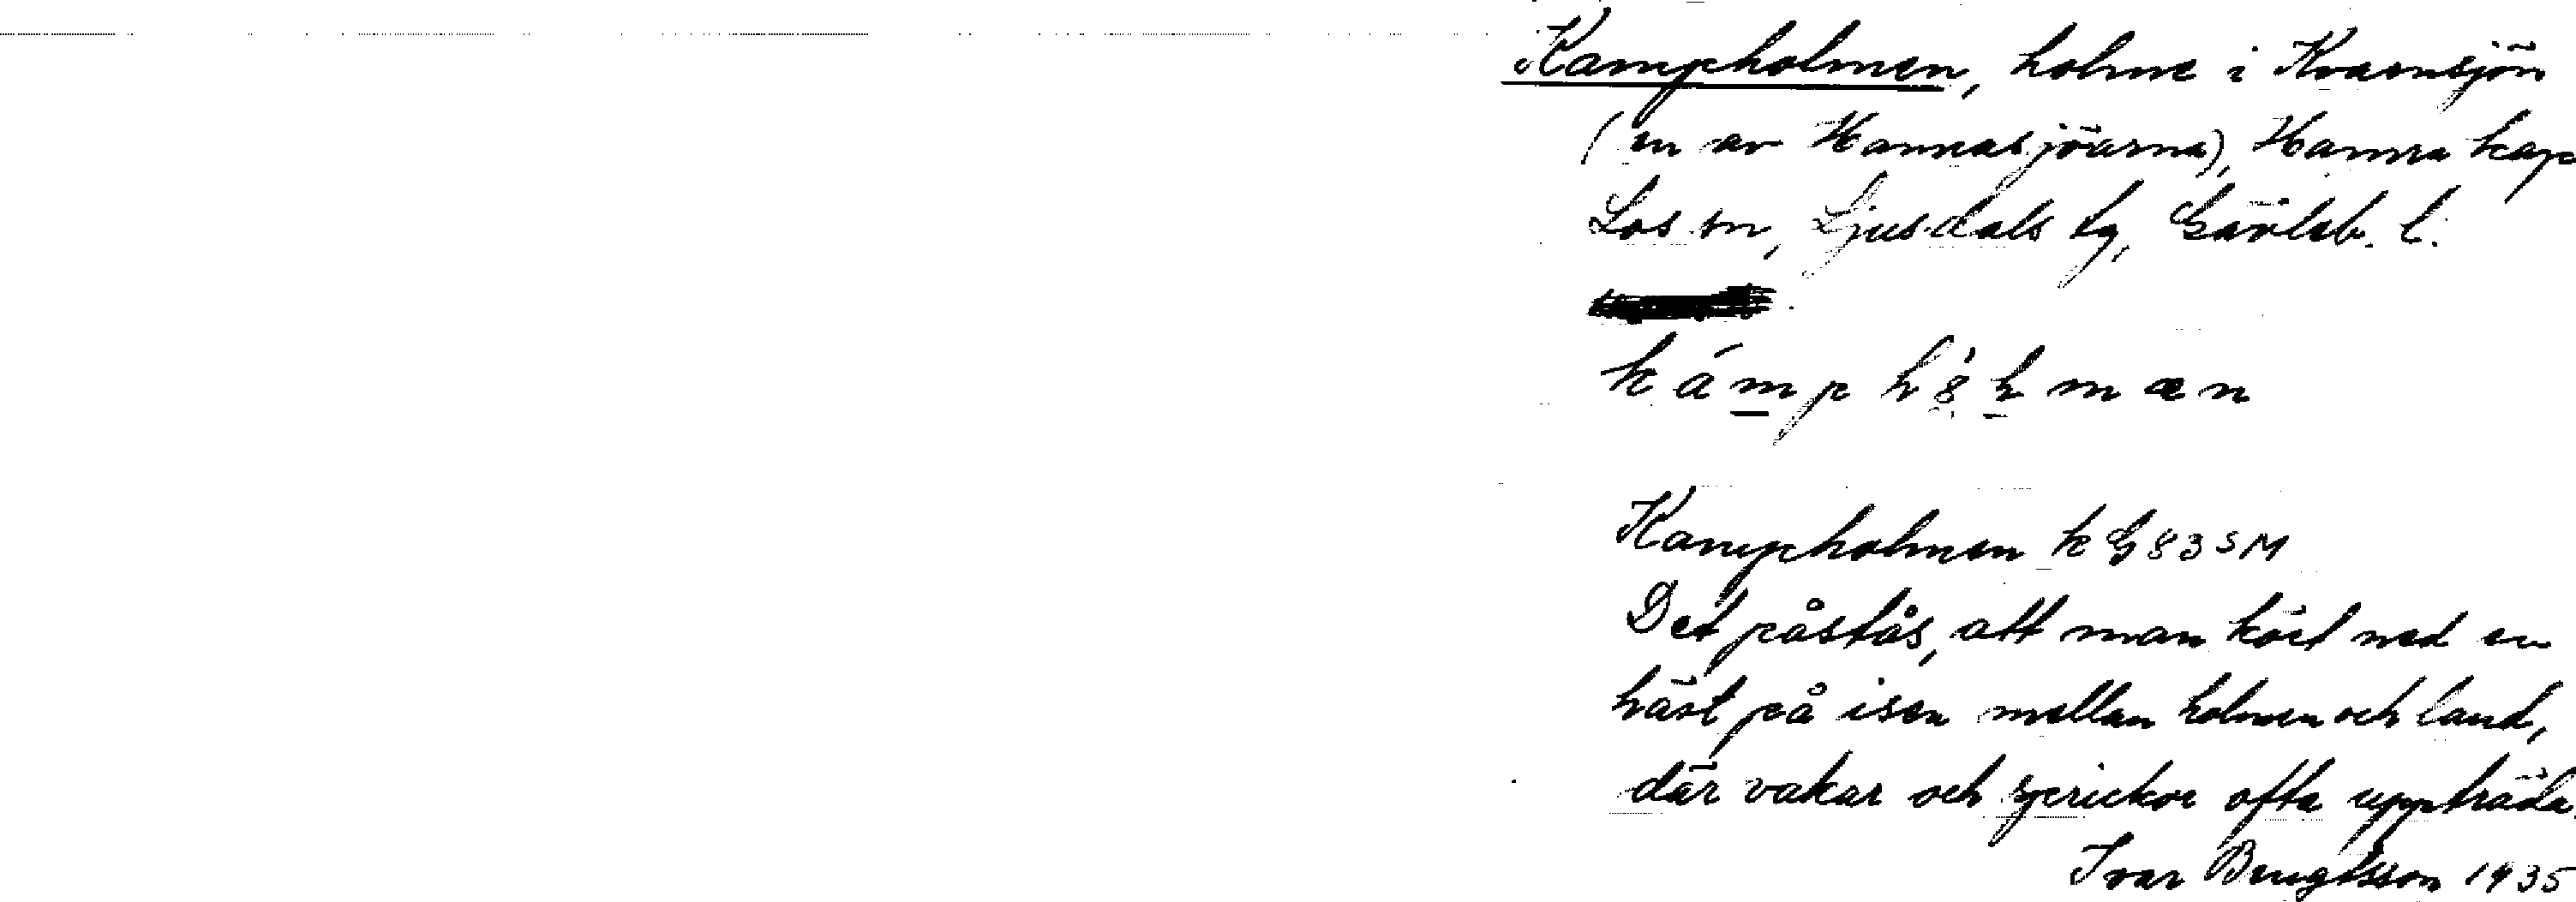 Kampholmen, holme i Kvarnsjön
(en av Hamrasjöarna), Hamra kap
Los sn, Ljusdals tg, Gävleb. l.
Kampholmen k G 83 SM
Det påstås, att man kört ned en
häst på isen mellan holmen och land,
där vakar och sprickor ofta uppträda.
Ivar Bengtsson 1935